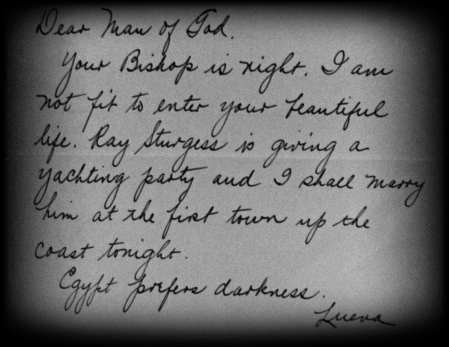 Dear Man of God.
Your Bishop is right. I am
not fit to enter your beautiful
life. Ray Sturgess is giving a
yachting party and I shall marry
him at the first town up the
coast tonight.
Egypt prefers darkness.
Lueva